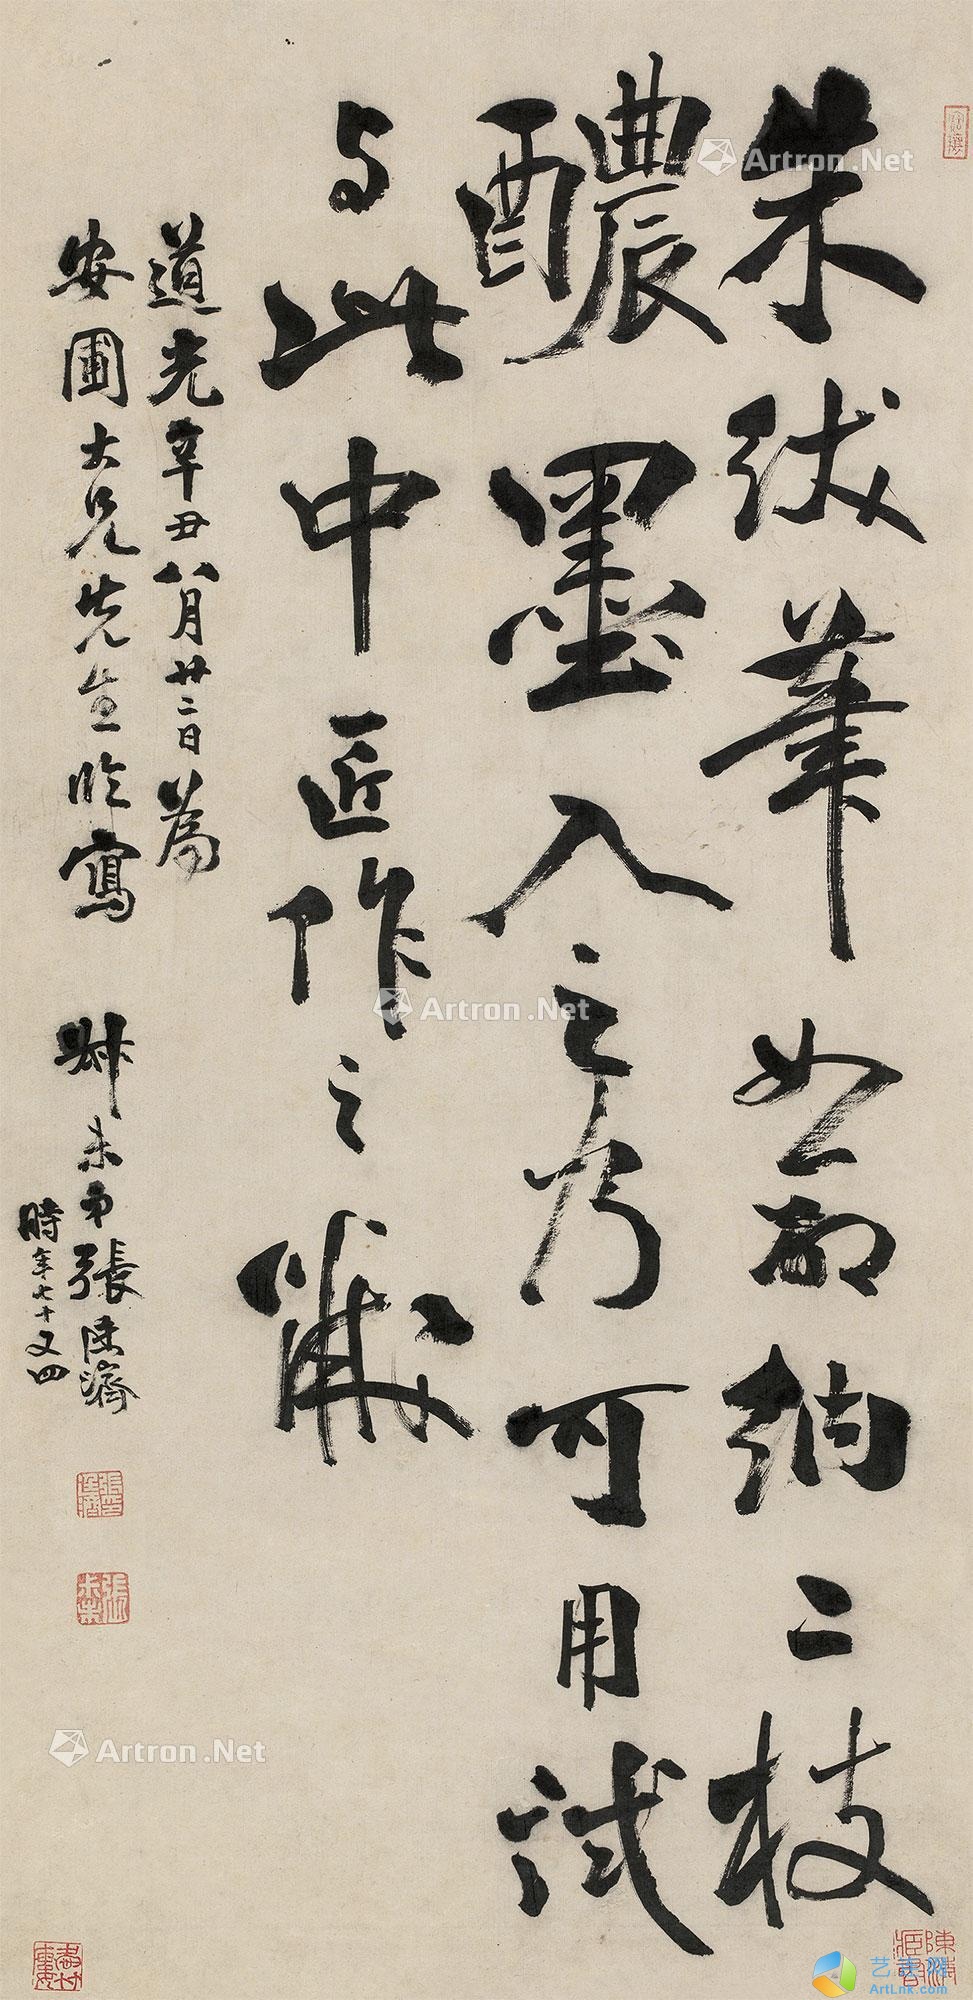 朱紱筆如前納二枝
醲墨入之乃可用試
与此中匠作之儀
道光辛丑八月廿二日為
安圃大兄先生臨寫
叔未弟張廷濟
時年七十又四
Artron.Net
Artron.Net
Artron.Net
ArtLnk.com